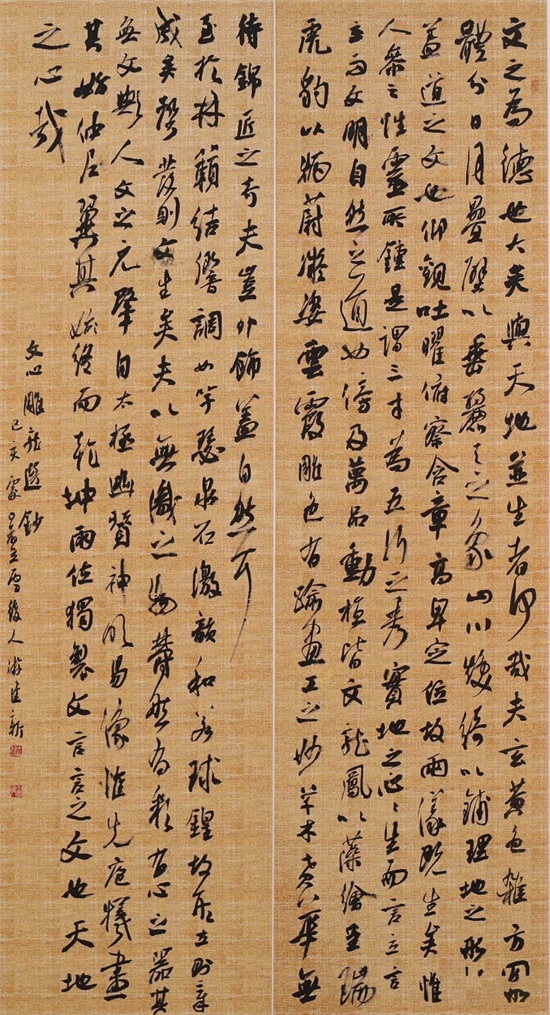 文之為德也大矣與天地並生者何哉夫玄黃色雜方圓
體分日月疊璧以垂麗天之象山川煥綺以鋪理地之形此
蓋道之文也仰觀吐曜俯察含章高卑定位故兩儀既生矣惟
人參之性靈所鍾是謂三才為五行之秀實地之心〻生而言立言
立而文明自然之道也傍及萬品動植皆文龍鳳以藻繪呈瑞
虎豹以炳蔚凝姿雲霞雕色有踰畫工之妙草木賁華無
待錦匠之奇夫豈外飾蓋自然耳
至於林籟結響調如竽瑟泉石激韻和若球鍠故形立則章
成矣聲發則文生矣夫以無識之物鬱然有彩有心之器其
無文歟人文之元肇自太極幽贊神明易象惟先庖犧畫
其始仲尼翼其終而乾坤兩位獨製文言言之文也天地
之心哉
文心雕龍選鈔
己亥立雪後人游建新